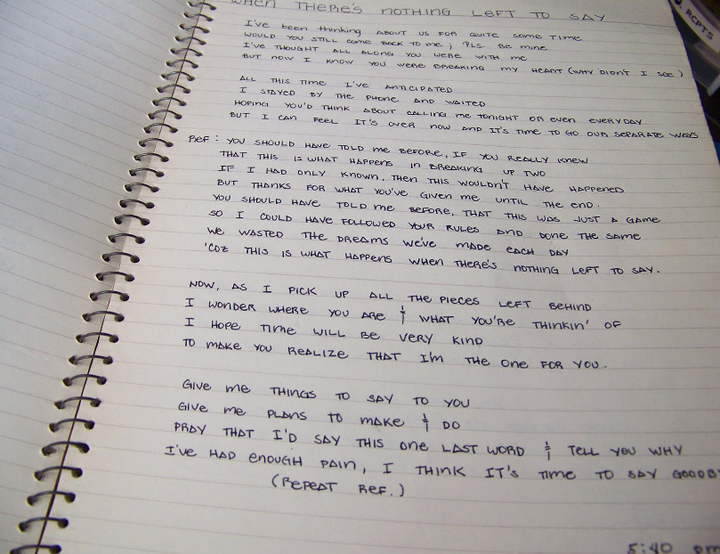 WHEN THERE'S NOTHING LEFT TO SAY
I'VE BEEN THINKING ABOUT US FOR QUITE SOME TIME
WOULD YOU STILL COME BACK TO ME; PLS. BE MINE
I'VE THOUGHT ALL ALONG YOU WERE WITH ME
BUT NOW I KNOW YOU WERE BREAKING MY HEART (WHY DIDN'T I SEE)
ALL THIS TIME I'VE ANTICIPATED
I STAYED BY THE PHONE AND WAITED
HOPING YOU'D THINK ABOUT CALLING ME TONIGHT OR EVEN EVERYDAY
BUT I CAN FEEL IT'S OVER NOW AND IT'S TIME TO GO OUR SEPARATE WAYS
REF: YOU SHOULD HAVE TOLD ME BEFORE, IF YOU REALLY KNEW
THAT THIS IS WHAT HAPPENS IN BREAKING UP TWO
IF I HAD ONLY KNOWN, THEN THIS WOULDN'T HAVE HAPPENED
BUT THANKS FOR WHAT YOU'VE GIVEN ME UNTIL THE END.
YOU SHOULD HAVE TOLD ME BEFORE, THAT THIS WAS JUST A GAME
SO I COULD HAVE FOLLOWED YOUR RULES AND DONE THE SAME
WE WASTED THE DREAMS WE'VE MADE EACH DAY
'COZ THIS IS WHAT HAPPENS WHEN THERE'S NOTHING LEFT TO SAY.
NOW, AS I PICK UP ALL THE PIECES LEFT BEHIND
I WONDER WHERE YOU ARE & WHAT YOU'RE THINKIN' OF
I HOPE TIME WILL BE VERY KIND
TO MAKE YOU REALIZE THAT I'M THE ONE FOR YOU.
GIVE ME THINGS TO SAY TO YOU
GIVE ME PLANS TO MAKE & DO
PRAY THAT I'D SAY THIS ONE LAST WORD & TELL YOU WHY
I'VE HAD ENOUGH PAIN, I THINK IT'S TIME TO SAY GOODB
(REPEAT REF.)
5:40 pm
RCPTS